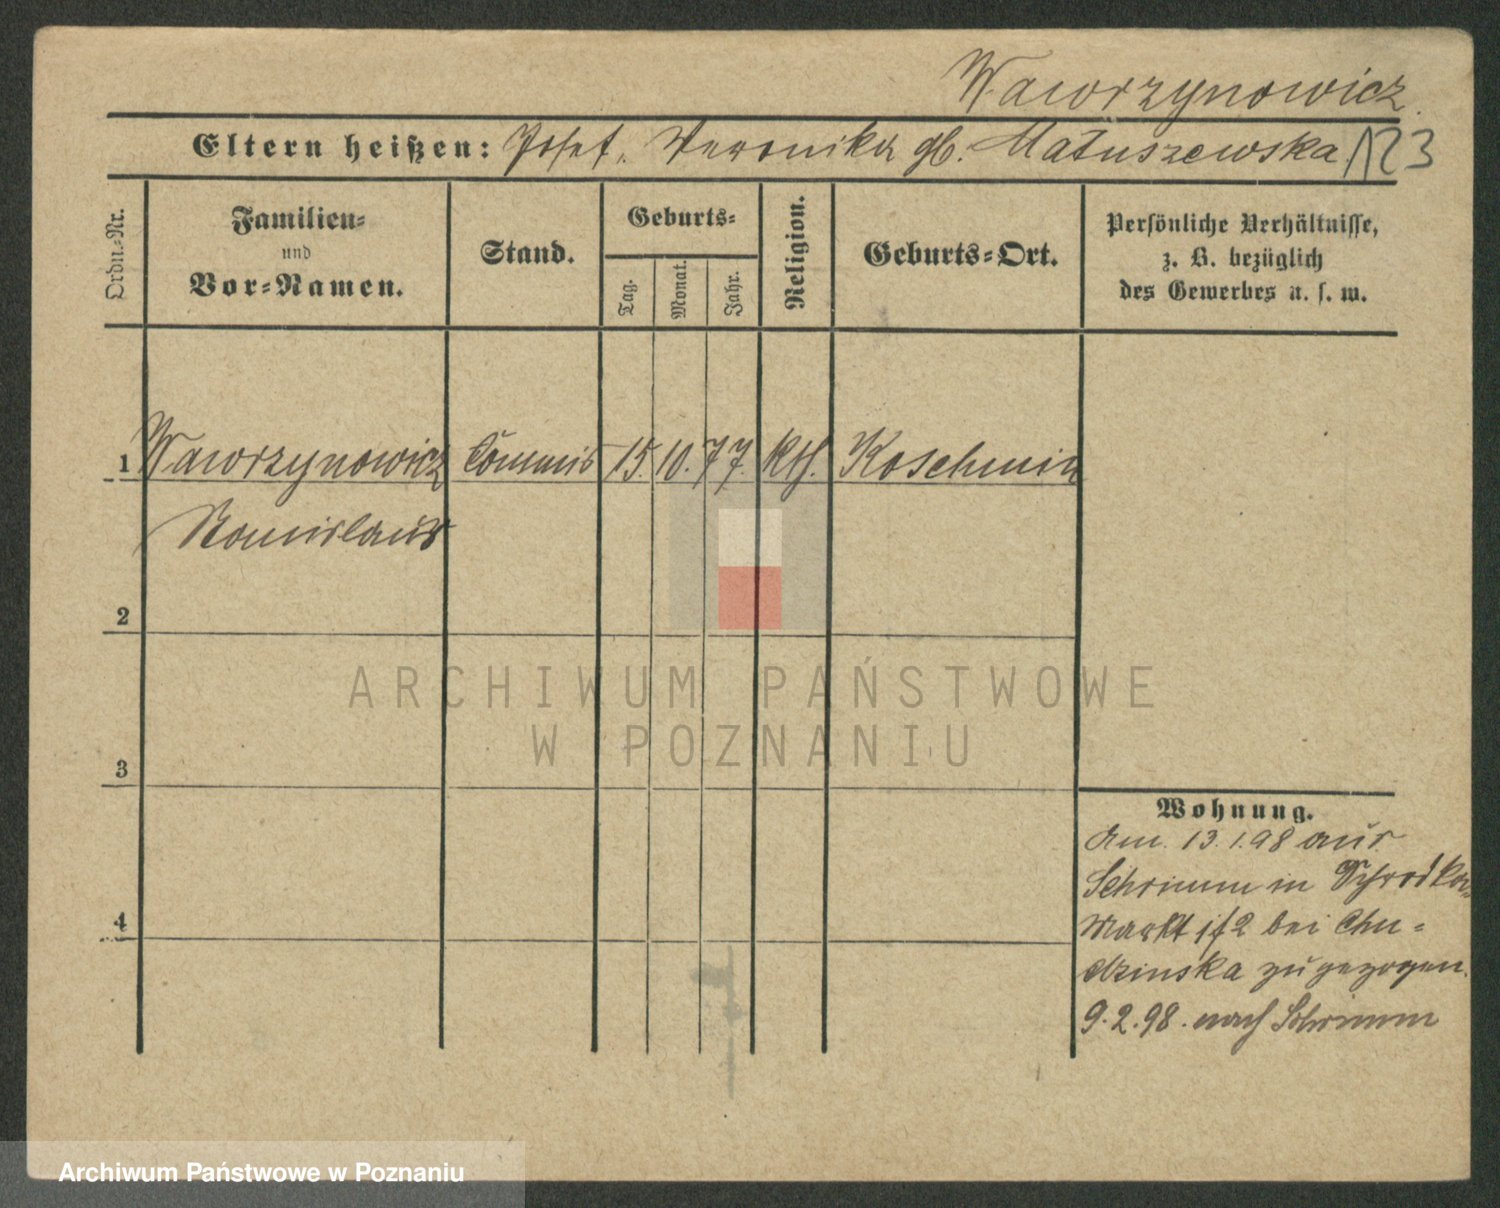 Wawrzynowicz
Eltern heißen: Josef, Veronika gb. Matuszewska 123
Ordn.-Nr.
Familien-
und
Vor-Namen.
Stand.
Geburts-
Tag.
Monat.
Jahr.
Religion.
Geburts-Ort.
Persönliche Verhältnisse,
z. B. bezüglich
des Gewerbes u. s. w.
1 Wawrzynowicz Commis 15. 10. 77. kth. Koschmin
Stanislaus
2
3
4
Wohnung.
Am 13.1.98 aus
Schrimm in Schrodka-
Markt 1/2 bei Chu-
dzinska zugezogen.
9.2.98. nach Schrimm
ARCHIWUM PAŃSTWOWE
W POZNANIU
Archiwum Państwowe w Poznaniu